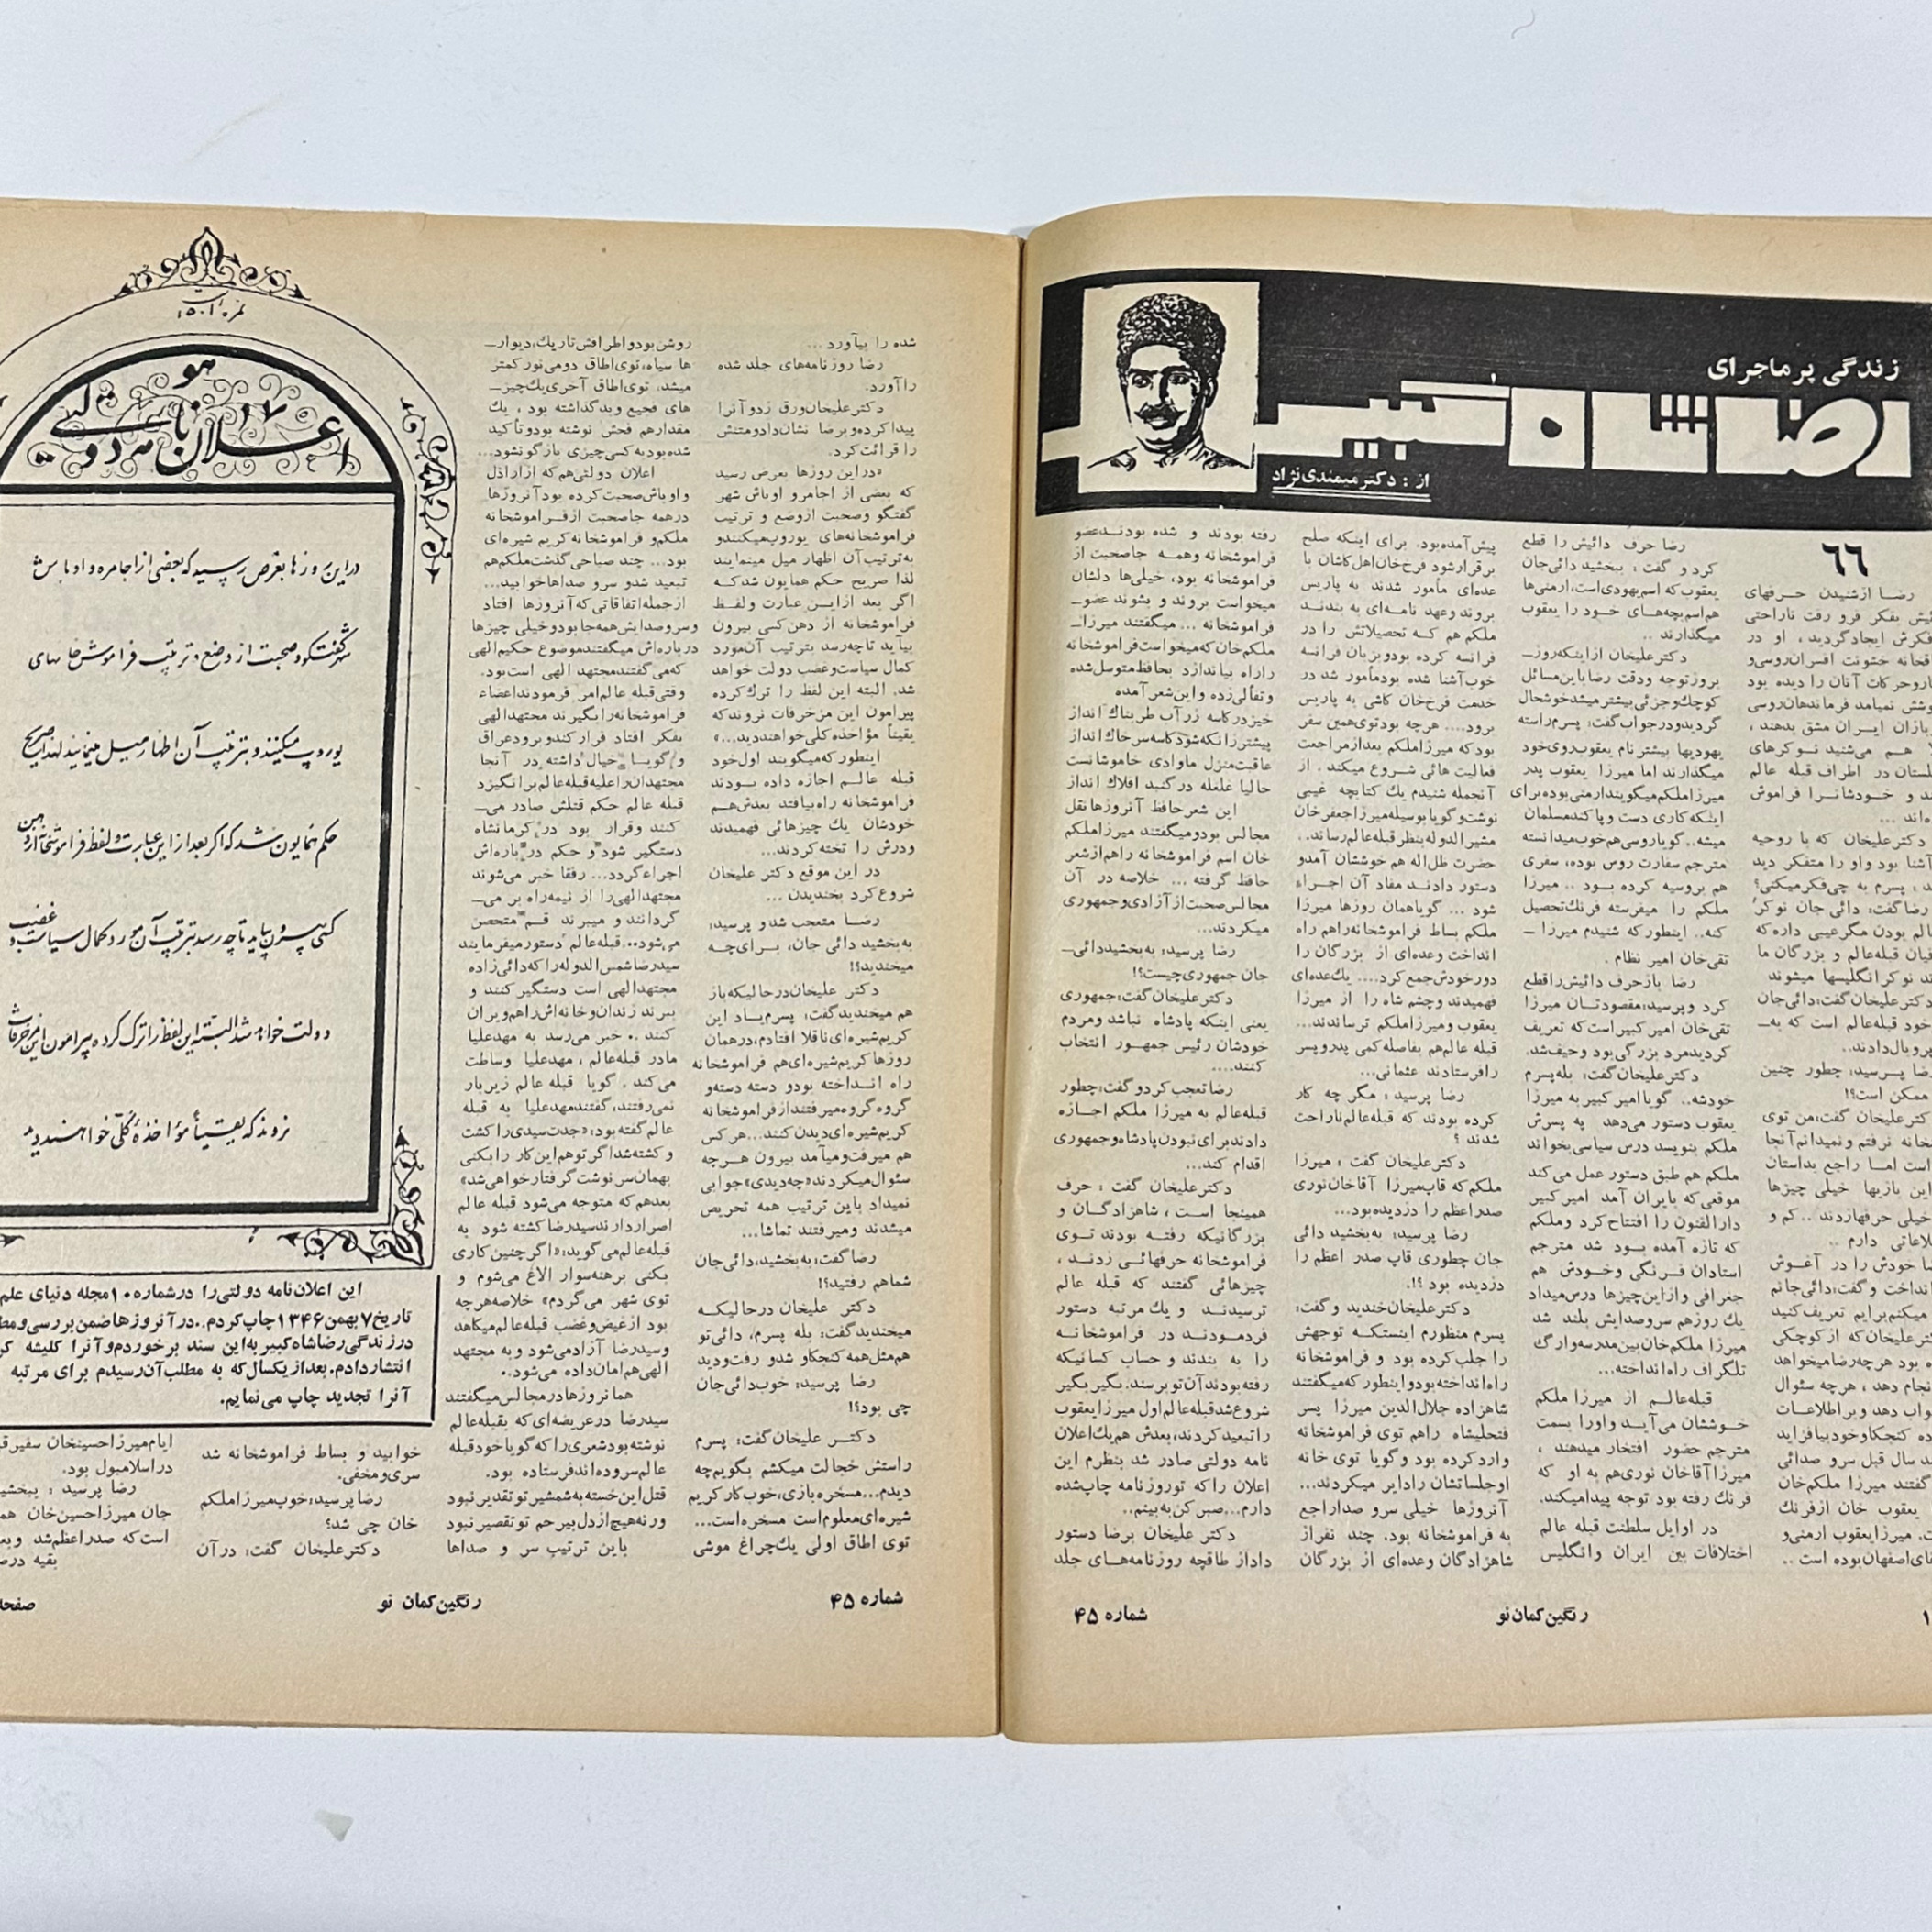 زندگی پر ماجرای
رضا شاه کبیر
از : دکتر میمندی‌نژاد
۶۶
رضا از شنیدن حرفهای
رضا حرف دائیش را قطع
کرد و گفت : ببخشید دائی‌جان
یعقوب که اسم یهودی است، ارمنی‌ها
هم اسم بچه‌های خود را یعقوب
میگذارند ..
دکتر علیخان از اینکه روز—
بروز توجه ودقت رضا باین مسائل
کوچك وجزئی بیشتر میشد خوشحال
گردید ودر جواب گفت: پسرم راسته
یهودیها بیشتر نام یعقوب روی خود
میگذارند اما میرزا یعقوب پدر
میرزا ملکم میگویند ارمنی بوده برای
اینکه کاری دست وپا کند مسلمان
میشه.. گویا روسی هم خوب میدانسته
مترجم سفارت روس بوده، سفری
هم بروسیه کرده بود .. میرزا
ملکم را میفرسته فرنك تحصیل
کنه.. اینطور که شنیدم میرزا —
تقی‌خان امیر نظام .
رضا باز حرف دائیش راقطع
کرد و پرسید: مقصودتان میرزا
تقی‌خان امیر کبیر است که تعریف
کردید مرد بزرگی بود وحیف شد.
دکتر علیخان گفت: بله پسرم
خودشه.. گویا امیر کبیر به میرزا
یعقوب دستور می‌دهد به پسرش
ملکم بنویسد درس سیاسی بخواند
ملکم هم طبق دستور عمل می‌کند
موقعی که بایران آمد امیر کبیر
دارالفنون را افتتاح کرد وملکم
که تازه آمده بود شد مترجم
استادان فرنگی وخودش هم
جغرافی واز این چیزها درس میداد
یك روز هم سروصدایش بلند شد
میرزا ملکم خان بین مدرسه وارگ
تلگراف راه انداخته...
قبله عالم از میرزا ملکم
خوششان می‌آید و اورا بسمت
مترجم حضور افتخار میدهند ،
میرزا آقاخان نوری هم به او که
فرنك رفته بود توجه پیدا میکند.
در اوایل سلطنت قبله عالم
اختلافات بین ایران وانگلیس
پیش آمده بود. برای اینکه صلح
برقرار شود فرخ‌خان اهل کاشان با
عده‌ای مأمور شدند به پاریس
بروند وعهد نامه‌ای به بندند
ملکم هم که تحصیلاتش را در
فرانسه کرده بود وبزبان فرانسه
خوب آشنا شده بود مأمور شد در
خدمت فرخ‌خان کاشی به پاریس
برود.... هرچه بود توی همین سفر
بود که میرزا ملکم بعد از مراجعت
فعالیت هائی شروع میکند . از
آنجمله شنیدم یك کتابچه غیبی
نوشت وگویا بوسیله میرزا جعفرخان
مشیرالدوله بنظر قبله عالم رساند..
حضرت ظل‌اله هم خوششان آمد و
دستور دادند مفاد آن اجراء
شود ... گویا همان روزها میرزا
ملکم بساط فراموشخانه راهم راه
انداخت وعده‌ای از بزرگان را
دور خودش جمع کرد.... یك عده‌ای
فهمیدند وچشم شاه را از میرزا
یعقوب ومیرزا ملکم ترساندند...
قبله عالم هم بفاصله کمی پدر وپسر
را فرستادند عثمانی...
رضا پرسید : مگر چه کار
کرده بودند که قبله عالم ناراحت
شدند ؟
دکتر علیخان گفت : میرزا
ملکم که قاپ میرزا آقاخان نوری
صدر اعظم را دزدیده بود...
رضا پرسید: به‌بخشید دائی
جان چطوری قاپ صدر اعظم را
دزدیده بود ؟!.
دکتر علیخان خندید و گفت:
پسرم منظورم اینستکه توجهش
را جلب کرده بود و فراموشخانه
راه انداخته بود و اینطور که میگفتند
شاهزاده جلال‌الدین میرزا پسر
فتحلیشاه راهم توی فراموشخانه
وارد کرده بود و گویا توی خانه
او جلساتشان را دایر میکردند...
آنروزها خیلی سرو صدا راجع
به فراموشخانه بود. چند نفر از
شاهزادگان وعده‌ای از بزرگان
رفته بودند و شده بودند عضو
فراموشخانه وهمه جا صحبت از
فراموشخانه بود، خیلی‌ها دلشان
میخواست بروند و بشوند عضو—
فراموشخانه ... میگفتند میرزا—
ملکم خان که میخواست فراموشخانه
را راه بیاندازد بحافظ متوسل شده
وتفألی زده و این شعر آمده
خیز در کاسه زر آب طربناك انداز
پیشتر زانکه شود کاسه سر خاك انداز
عاقبت منزل ما وادی خاموشانست
حالیا غلغله در گنبد افلاك انداز
این شعر حافظ آنروزها نقل
مجالس بود ومیگفتند میرزا ملکم
خان اسم فراموشخانه را هم از شعر
حافظ گرفته ... خلاصه در آن
مجالس صحبت از آزادی وجمهوری
میکردند...
رضا پرسید: به‌بخشید دائی—
جان جمهوری چیست؟!
دکتر علیخان گفت: جمهوری
یعنی اینکه پادشاه نباشد ومردم
خودشان رئیس جمهور انتخاب
کنند....
رضا تعجب کرد و گفت: چطور
قبله عالم به میرزا ملکم اجازه
دادند برای نبودن پادشاه وجمهوری
اقدام کند...
دکتر علیخان گفت : حرف
همینجا است ، شاهزادگان و
بزرگانیکه رفته بودند توی
فراموشخانه حرفهائی زدند ،
چیزهائی گفتند که قبله عالم
ترسیدند و یك مرتبه دستور
فرمودند در فراموشخانه
را به بندند و حساب کسانیکه
رفته بودند آن تو برسند. بگیر بگیر
شروع شد قبله عالم اول میرزا یعقوب
را تبعید کردند، بعدش هم یك اعلان
نامه دولتی صادر شد بنظرم این
اعلان را که توروزنامه چاپ شده
دارم...صبر کن به‌بینم..
دکتر علیخان برضا دستور
داد از طاقچه روزنامه‌های جلد
شماره ۴۵
رنگین‌کمان نو
شده را بیآورد ...
رضا روزنامه‌های جلد شده
را آورد.
دکتر علیخان ورق زد و آنرا
پیدا کرده وبرضا نشان داد ومتنش
را قرائت کرد.
«در این روزها بعرض رسید
که بعضی از اجامر و اوباش شهر
گفتگو وصحبت ازوضع و ترتیب
فراموشخانه‌های یوروپ میکنند و
به ترتیب آن اظهار میل مینمایند
لذا صریح حکم همایون شد که
اگر بعد از این عبارت و لفظ
فراموشخانه از دهن کسی بیرون
بیآید تاچه رسد بترتیب آن مورد
کمال سیاست وغضب دولت خواهد
شد. البته این لفظ را ترك کرده
پیرامون این مزخرفات نروند که
یقیناً مؤاخذه کلی خواهند دید...»
اینطور که میگویند اول خود
قبله عالم اجازه داده بودند
فراموشخانه راه بیافتد بعدش هم
خودشان یك چیزهائی فهمیدند
ودرش را تخته کردند...
در این موقع دکتر علیخان
شروع کرد بخندیدن ...
رضا متعجب شد و پرسید:
به‌بخشید دائی جان، برای چه
میخندید؟!
دکتر علیخان در حالیکه باز
هم میخندید گفت: پسرم یاد این
کریم شیره‌ای ناقلا افتادم، در همان
روزها کریم شیره‌ای هم فراموشخانه
راه انداخته بود و دسته دسته و
گروه گروه میرفتند از فراموشخانه
کریم شیره‌ای دیدن کنند... هر کس
هم میرفت ومیآمد بیرون هر چه
سئوال میکردند «چه دیدی» جوابی
نمیداد باین ترتیب همه تحریص
میشدند ومیرفتند تماشا...
رضا گفت: به‌بخشید، دائی جان
شما هم رفتید؟!
دکتر علیخان درحالیکه
میخندید گفت: بله پسرم، دائی تو
هم مثل همه کنجکاو شد و رفت ودید
رضا پرسید: خوب دائی جان
چی بود؟!
دکتر علیخان گفت: پسرم
راستش خجالت میکشم بگویم چه
دیدم...مسخره بازی، خوب کار کریم
شیره‌ای معلوم است مسخره است...
توی اطاق اولی یك چراغ موشی
روشن بود و اطرافش تاریك، دیوار—
ها سیاه، توی اطاق دومی نور کمتر
میشد، توی اطاق آخری یك چیز—
های فجیع وبد گذاشته بود ، یك
مقدار هم فحش نوشته بود وتأکید
شده بود به کسی چیزی باز گو نشود...
اعلان دولتی هم که از اراذل
و اوباش صحبت کرده بود آنروزها
در همه جا صحبت از فراموشخانه
ملکم و فراموشخانه کریم شیره‌ای
بود... چند صباحی گذشت ملکم هم
تبعید شد و سرو صداها خوابید...
از جمله اتفاقاتی که آنروزها افتاد
وسروصدایش همه جا بود و خیلی چیزها
در باره‌اش میگفتند موضوع حکیم الهی
که می‌گفتند مجتهد الهی است بود.
وقتی قبله عالم امر فرمودند اعضاء
فراموشخانه را بگیرند مجتهد الهی
بفکر افتاد فرار کند وبرود عراق
و گویا خیال داشته در آنجا
مجتهدان را علیه قبله عالم برانگیزد
قبله عالم حکم قتلش صادر می—
کنند وقرار بود در کرمانشاه
دستگیر شود و حکم در باره‌اش
اجراء گردد... رفقا خبر می‌شوند
مجتهد الهی را از نیمه راه بر می—
گردانند و میبرند قم متحصن
می‌شود.. قبله عالم دستور میفرمایند
سید رضا شمس الدوله را که دائی زاده
مجتهد الهی است دستگیر کنند و
ببرند زندان وخانه‌اش را هم ویران
کنند .. خبر می‌رسد به مهدعلیا
مادر قبله عالم ، مهدعلیا وساطت
می‌کند . گویا قبله عالم زیربار
نمی‌رفتند، گفتند مهدعلیا به قبله
عالم گفته بود: «جدت سیدی را کشت
و کشته شد اگر تو هم این کار را بکنی
بهمان سرنوشت گرفتار خواهی شد»
بعد هم که متوجه می‌شود قبله عالم
اصرار دارند سید رضا کشته شود به
قبله عالم می‌گوید: «اگر چنین کاری
بکنی برهنه سوار الاغ می‌شوم و
توی شهر می‌گردم» خلاصه هر چه
بود از غیض وغضب قبله عالم میکاهد
وسید رضا آزاد می‌شود و به مجتهد
الهی هم امان داده می‌شود..
همانروزها در مجالس میگفتند
سید رضا در عریضه‌ای که بقبله عالم
نوشته بود شعری را که گویا خود قبله
عالم سروده‌اند فرستاده بود.
قتل این خسته به شمشیر تو تقدیر نبود
ورنه هیچ از دل بیرحم تو تقصیر نبود
باین ترتیب سر و صداها
نمره ۱۵۰۱
هو
اعلان نامه دولتی
در این روزها بعرض رسید که بعضی از اجامره و اوباش
شهر گفتگو و صحبت از وضع و ترتیب فراموشخانهای
یوروپ میکنند و بترتیب آن اظهار میل مینمایند لهذا صریح
حکم همایون شد که اگر بعد از این عبارت و لفظ فراموشخانه از دهن
کسی بیرون بیاید تا چه رسد بترتیب آن مورد کمال سیاست و غضب
دولت خواهد شد البته این لفظ را ترک کرده پیرامون این مزخرفات
نروند که یقیناً مؤاخذه کلی خواهند دید
این اعلان نامه دولتی را در شماره ۱۰ مجله دنیای علم
تاریخ ۷ بهمن ۱۳۴۶ چاپ کردم. در آنروزها ضمن بررسی و
در زندگی رضاشاه کبیر به این سند برخوردم و آنرا کلیشه
انتشار دادم. بعد از یکسال که به مطلب آن رسیدم برای مرتبه
آنرا تجدید چاپ می‌نمایم.
خوابید و بساط فراموشخانه شد
سری و مخفی.
رضا پرسید: خوب میرزا ملکم
خان چی شد؟
دکتر علیخان گفت: در آن
ایام میرزا حسینخان سفیر
در اسلامبول بود.
رضا پرسید : ببخشید
جان میرزا حسین خان
است که صدر اعظم شد
بقیه در
شماره ۴۵
رنگین‌کمان نو
صفحه